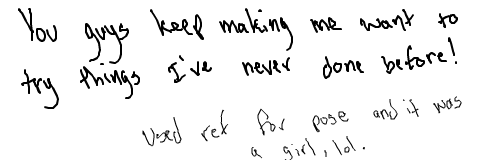 You guys keep making me want to
try things I've never done before!
Used ref for pose and it was
a girl, lol.